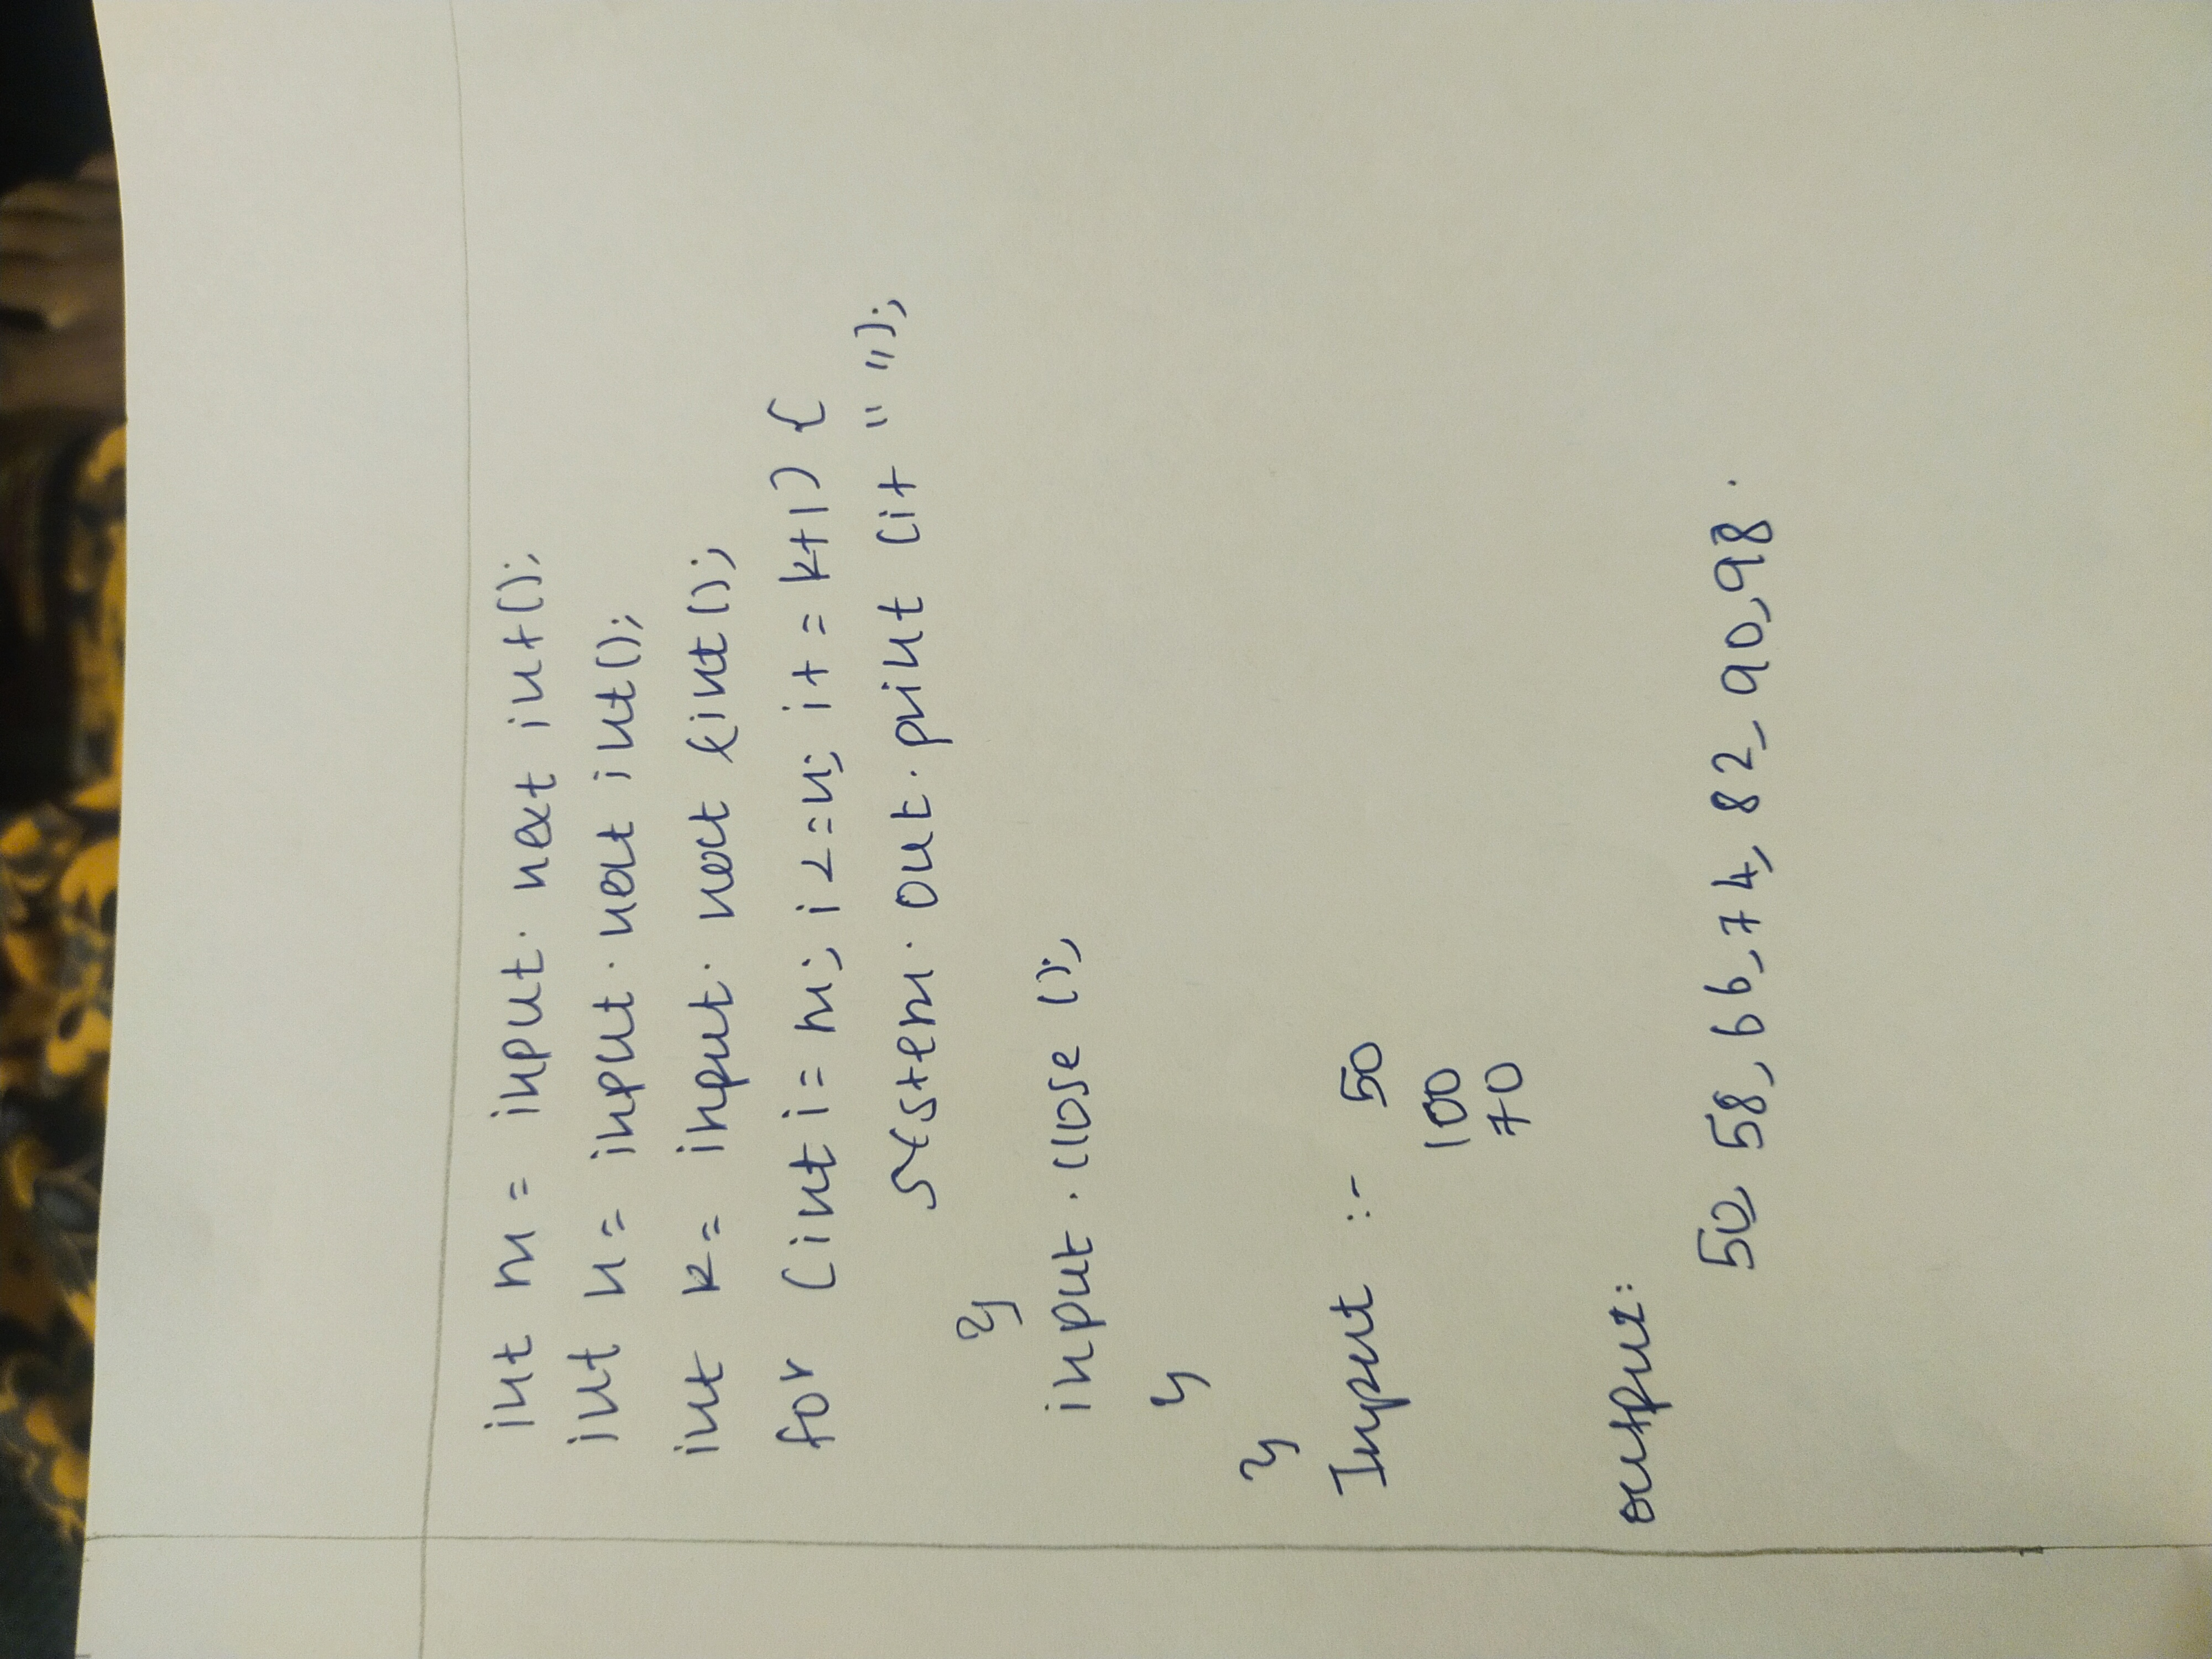 int m = input. next int();
int n = input. next int();
int k = input. next int();
for (int i = m; i <= n; i+ = k+1) {
system. out. print (i+ " ");
}
input. close ();
}
}
Input :- 50
100
70
output:
50, 58, 66, 74, 82, 90, 98.